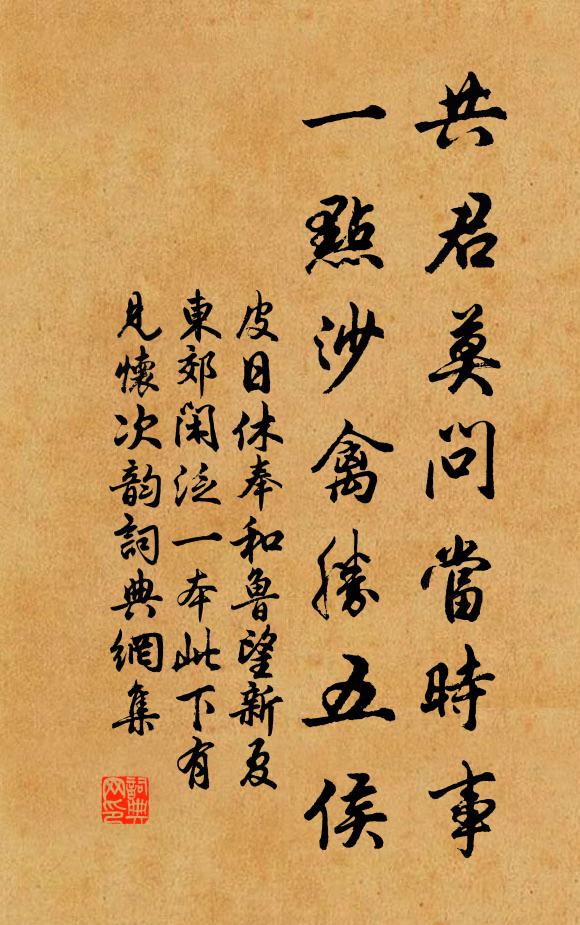 共君莫問當時事
一點沙禽勝五侯
皮日休奉和魯望新夏
東郊閑泛一本此下有
見懷次韵詞典網集
詞典網印